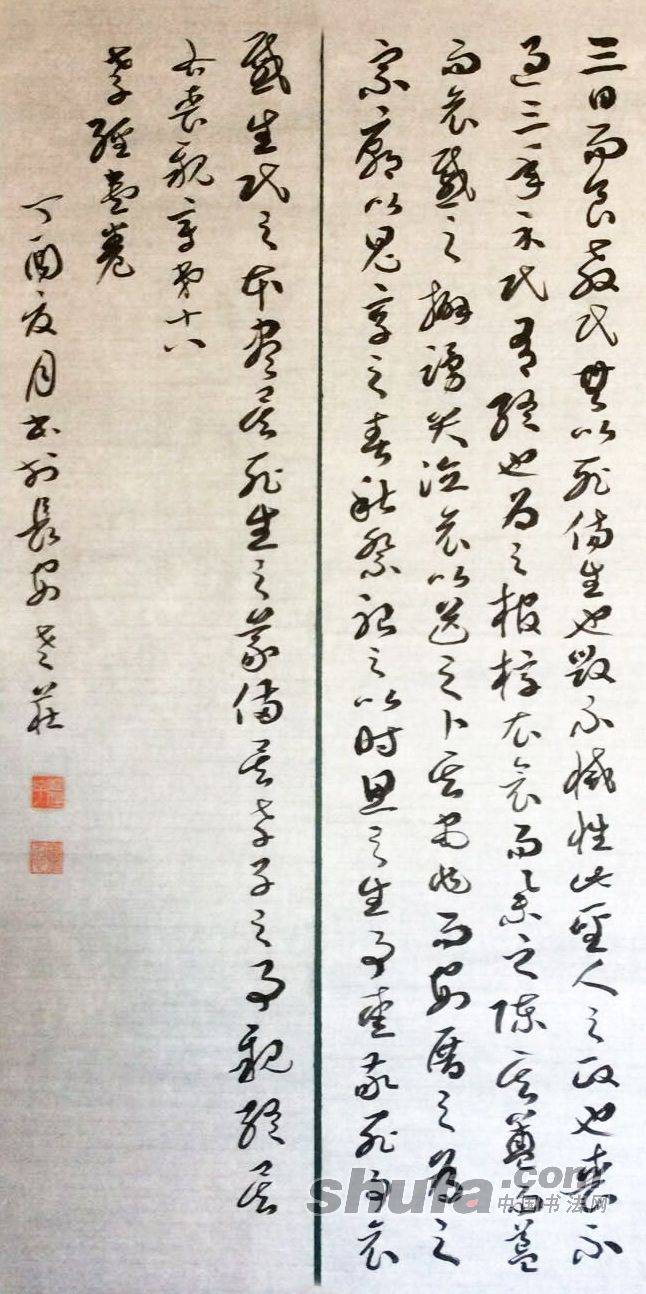 三日而食教民無以死傷生也毀不滅性此聖人之政也喪不
過三年示民有終也為之棺椁衣衾而舉之陳其簠簋
而哀慼之擗踴哭泣哀以送之卜其宅兆而安厝之為之
宗廟以鬼享之春秋祭祀之以時思之生事愛敬死事哀
慼生民之本盡矣死生之義備矣孝子之事親終矣
右喪親章第十八
孝經壹卷
丁酉夏月書於長安老莊
shufa.com
中国书法网